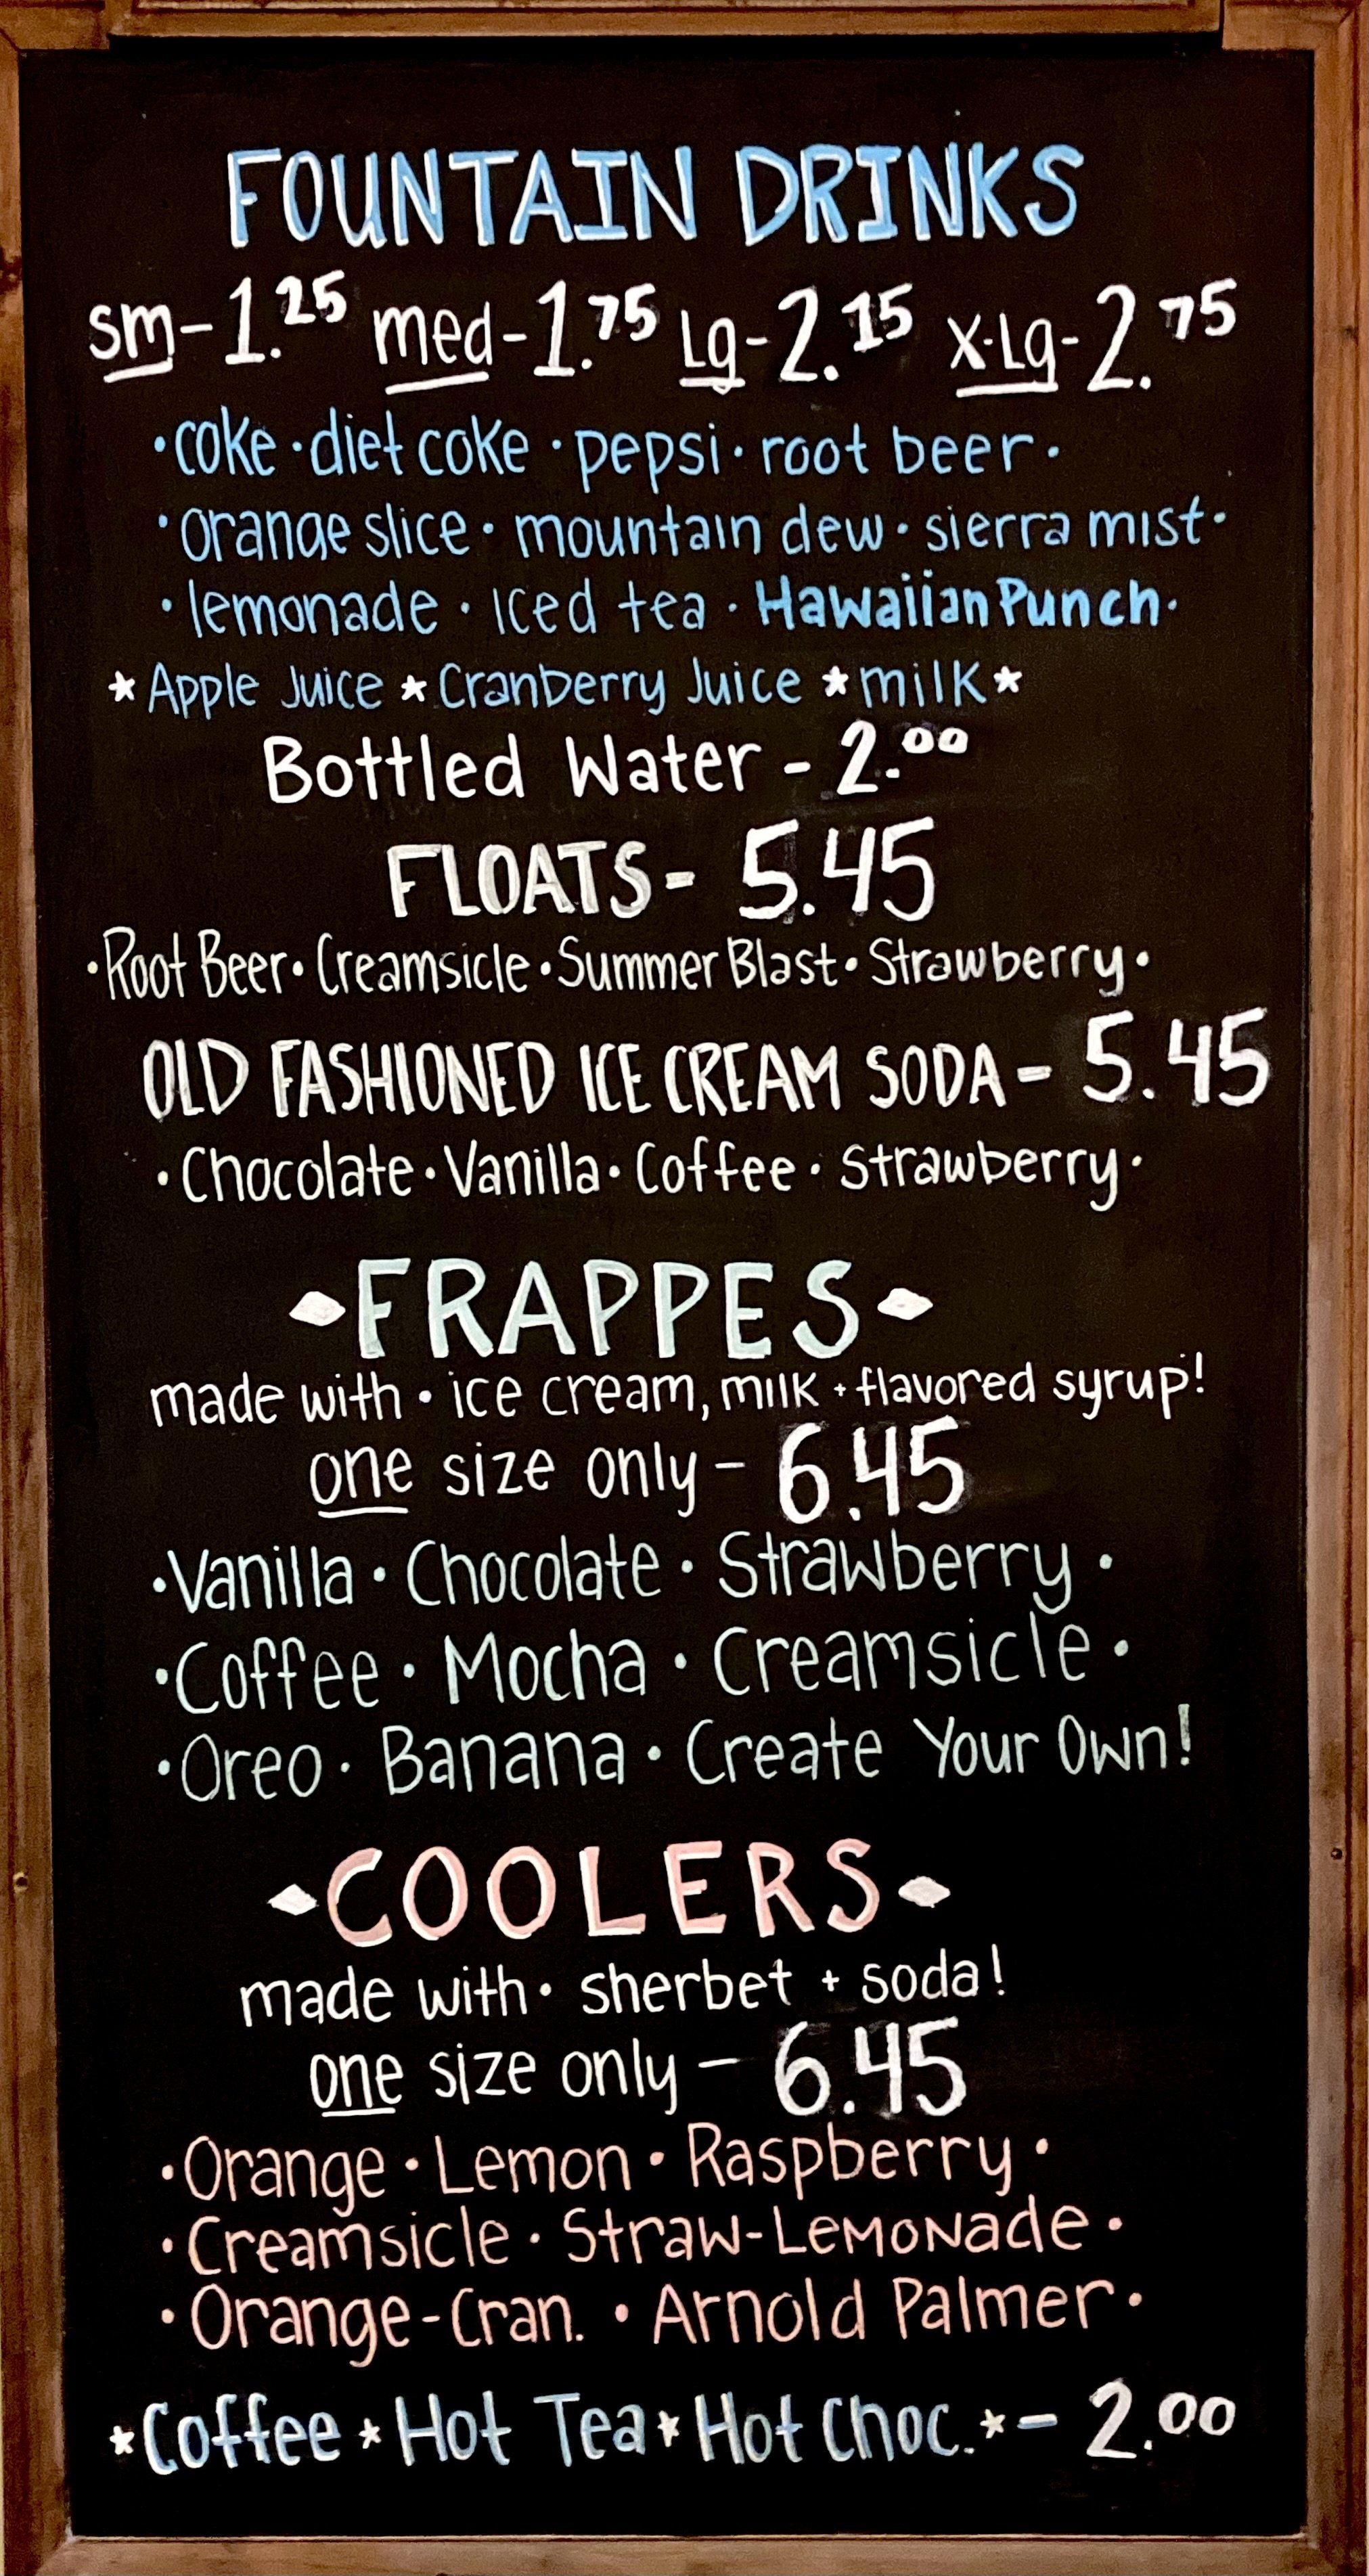 FOUNTAIN DRINKS
sm-1.25 med-1.75 Lg-2.15 X-Lg-2.75
·coke·diet coke·pepsi·root beer·
·orange slice·mountain dew·sierra mist·
·lemonade·Iced tea·Hawaiian Punch·
★Apple Juice★Cranberry Juice★milk★
Bottled Water-2.00
FLOATS- 5.45
·Root Beer·Creamsicle·Summer Blast·Strawberry·
OLD FASHIONED ICE CREAM SODA- 5.45
·Chocolate·Vanilla·Coffee·Strawberry·
◆FRAPPES◆
made with·ice cream, milk + flavored syrup!
one size only- 6.45
·Vanilla·Chocolate·Strawberry·
·Coffee·Mocha·Creamsicle·
·Oreo·Banana·Create Your Own!
◆COOLERS◆
made with·sherbet + soda!
one size only- 6.45
·Orange·Lemon·Raspberry·
·Creamsicle·Straw-Lemonade·
·Orange-Cran.·Arnold Palmer·
★Coffee★Hot Tea★Hot Choc.★- 2.00